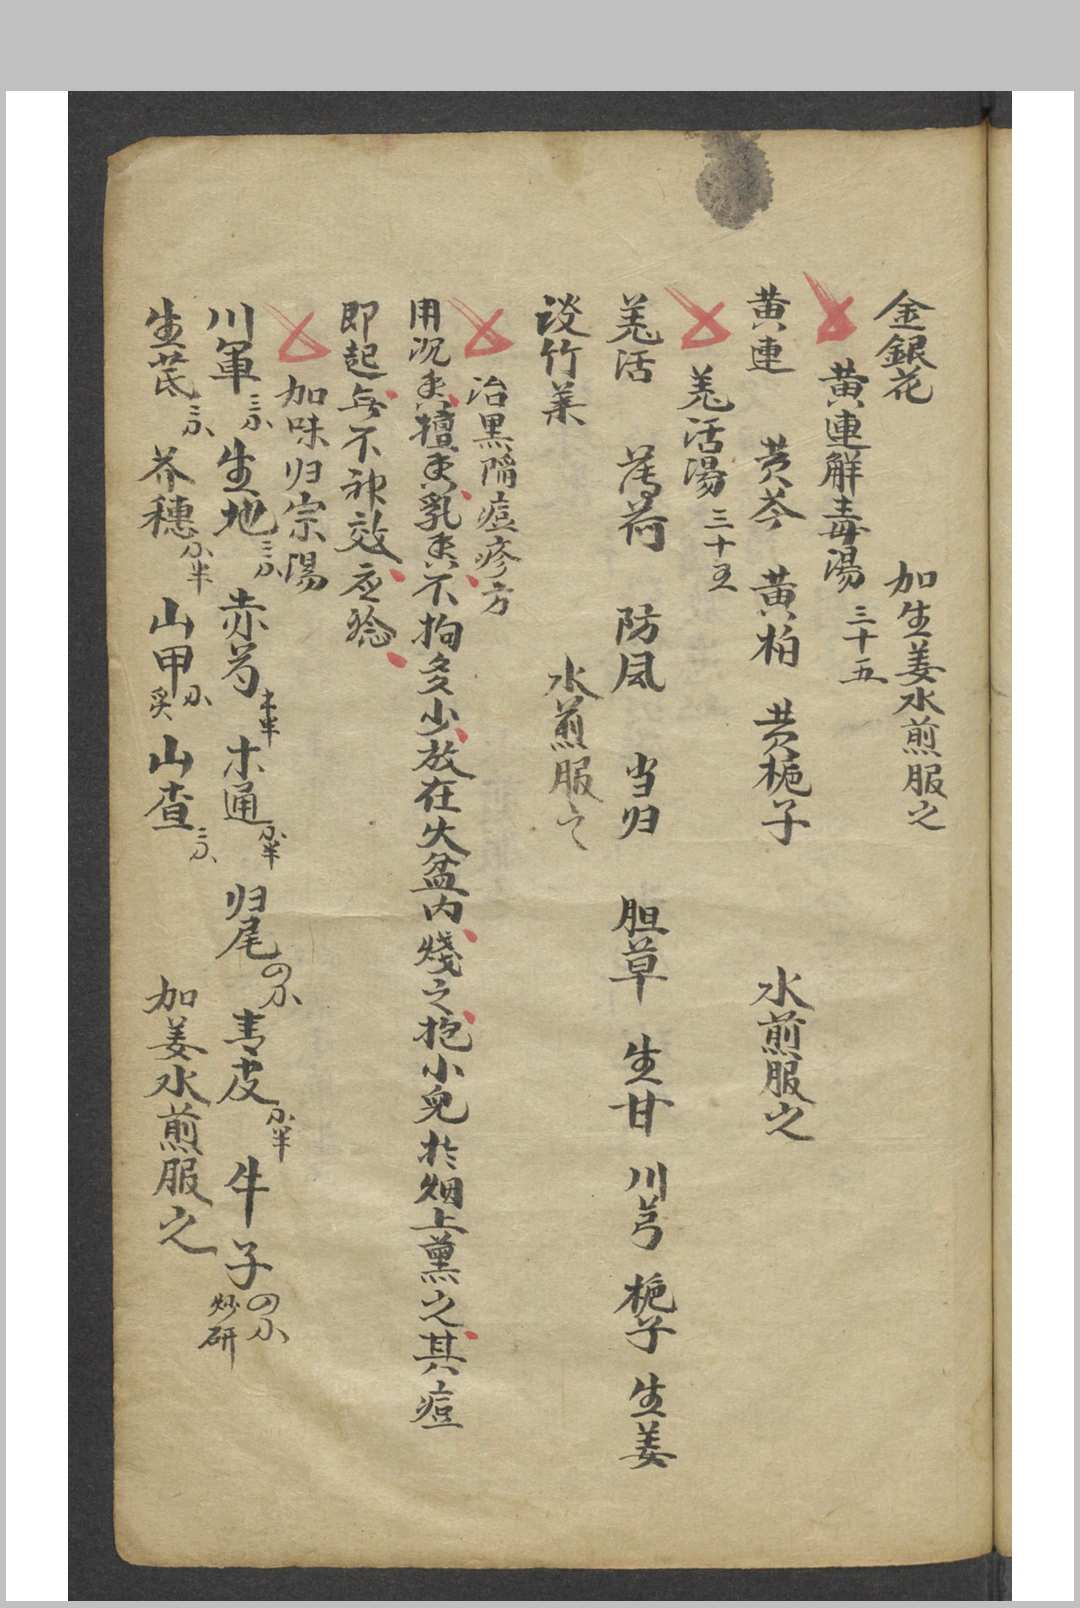 金銀花 加生姜水煎服之
黄連解毒湯 三十五
黄連 黄芩 黄柏 黄栀子 水煎服之
羗活湯 三十五
羗活 薄荷 防风 当归 胆草 生甘 川芎 栀子 生姜
淡竹葉 水煎服之
治黒陷痘疹方
用沉香檀香乳香不拘多少放在火盆内燒之抱小兒於烟上薰之其痘
即起無不神效应驗
加味归宗湯
川軍 三分 生地 三分 赤芍 半 木通 分半 归尾 四分 青皮 分半 牛子 四分 炒研
生芪 三分 芥穗 分半 山甲 分 炙 山查 三分 加姜水煎服之